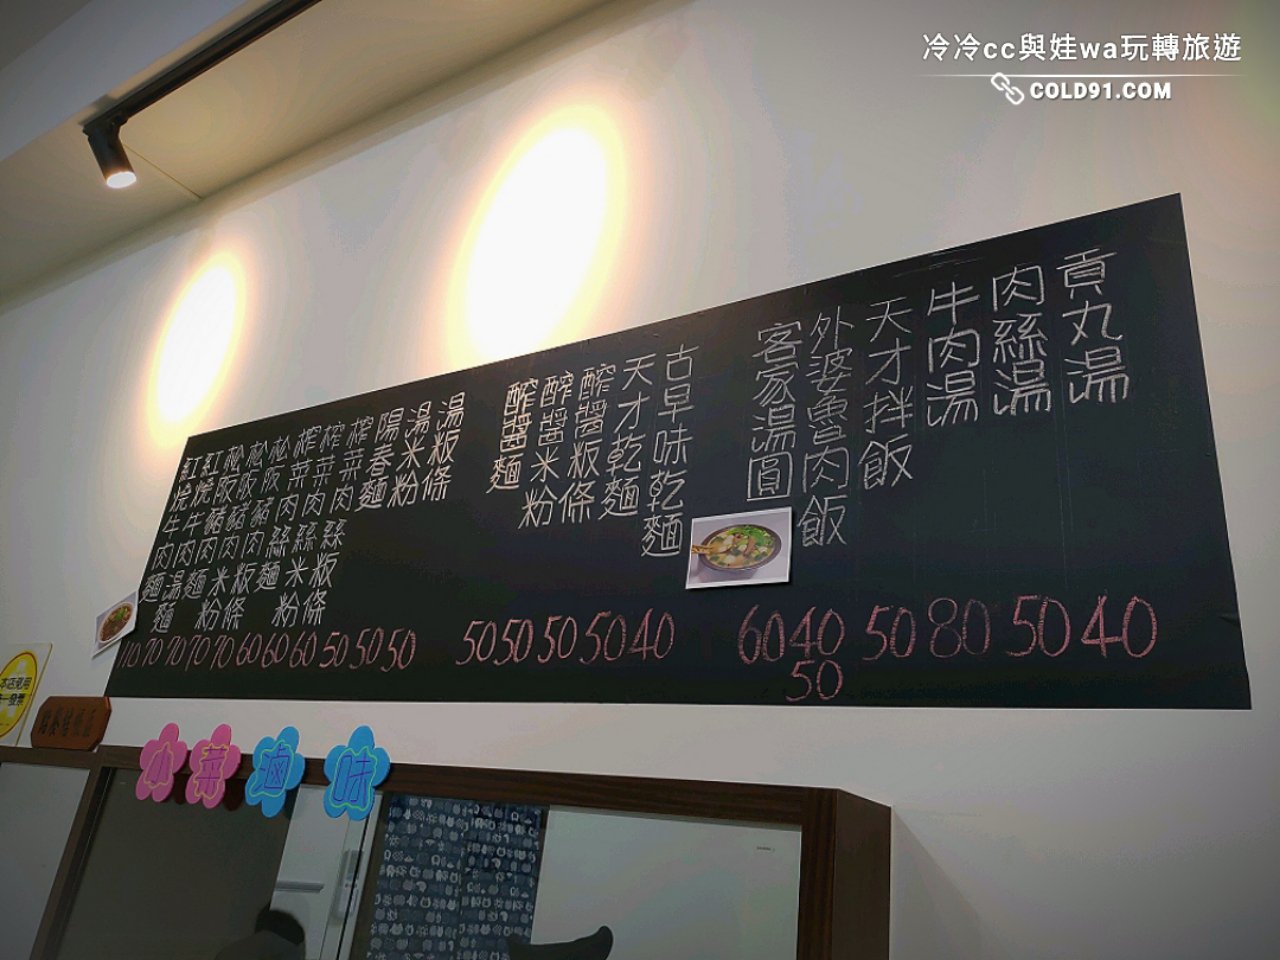 冷冷cc與娃wa玩轉旅遊
COLD91.COM
貢丸湯 40
肉絲湯 50
牛肉湯 80
天才拌飯 50
外婆魯肉飯 40 50
客家湯圓 60
古早味乾麵 40
天才乾麵 50
醡醬粄條 50
醡醬米粉 50
醡醬麵 50
湯粄條 50
湯米粉 50
陽春麵 50
榨菜肉絲粄條 60
榨菜肉絲米粉 60
榨菜肉絲麵 60
松阪豬肉粄條 70
松阪豬肉米粉 70
松阪豬肉麵 70
紅燒牛肉湯麵 70
紅燒牛肉麵 110
小菜滷味